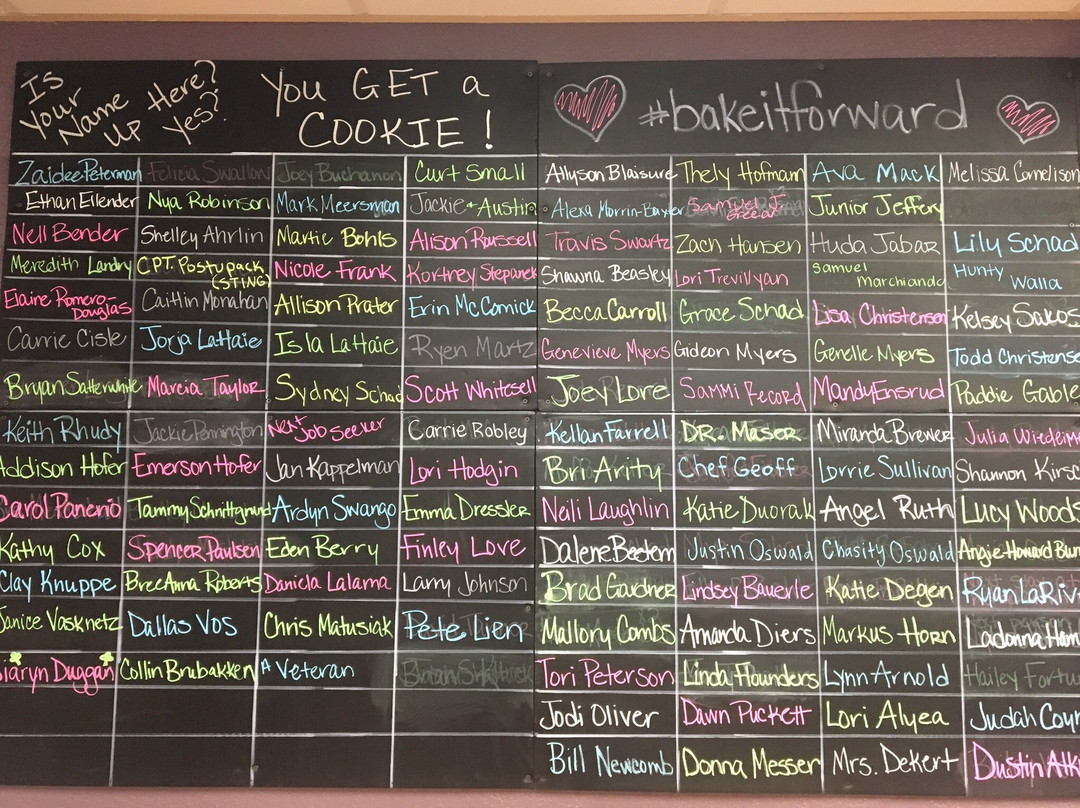 Is Your Name Up Here? Yes?
You GET a
COOKIE!
#bakeitforward
Zaidee Peterman Felicia Swallow Joey Buchanan Curt Small
Ethan Eilender Nya Robinson Mark Meersman Jackie + Austin
Nell Bender Shelley Ahrlin Martie Bohls Alison Roussell
Meredith Landry CPT. Postupack (STING) Nicole Frank Kortney Stepanek
Elaine Romero-Douglas Caitlin Monahan Allison Prater Erin McComick
Carrie Cisle Jorja LaHaie Isla LaHaie Ryen Martz
Bryan Satterwhite Marcia Taylor Sydney Schad Scott Whitesell
Keith Rhudy Jackie Pennington Next Job Seeker Carrie Robley
Addison Hofer Emerson Hofer Jan Kappelman Lori Hodgin
Carol Panerio Tammy Schnittgrund Ardyn Swango Emma Dressler
Kathy Cox Spencer Paulsen Eden Berry Finley Love
Clay Knuppe BreeAnna Roberts Daniela Lalama Larry Johnson
Janice Vosknetz Dallas Vos Chris Matusiak Pete Lien
Duggan Collin Brubakken A Veteran
Allyson Blaisure Thely Hofman Ava Mack Melissa Cornelison
Alexa Morrin-Baxter Samuel J. Greear Junior Jeffery
Travis Swartz Zach Hansen Huda Jabar Lily Schad
Shawna Beasley Lori Trevillyan Samuel Marchiando Hunty Walla
Becca Carroll Grace Schad Lisa Christenson Kelsey Sakos
Genevieve Myers Gideon Myers Genelle Myers Todd Christense
Joey Lore Sammi Record Mandy Ensrud Paddie Gable
Kellan Farrell DR. Maser Miranda Brewer Julia Wiedem
Bri Arity Chef Geoff Lorrie Sullivan Shannon Kirsc
Neili Laughlin Katie Dvorak Angel Ruth Lucy Woods
Dalene Beetem Justin Oswald Chasity Oswald Angie Howard Bun
Brad Gardner Lindsey Bauerle Katie Degen Ryan LaRiv
Mallory Combs Amanda Diers Markus Horn Ladonna Ham
Tori Peterson Linda Hounders Lynn Arnold Hailey Fortu
Jodi Oliver Dawn Puckett Lori Alyea Judah Cour
Bill Newcomb Donna Messer Mrs. Dekert Dustin Atk